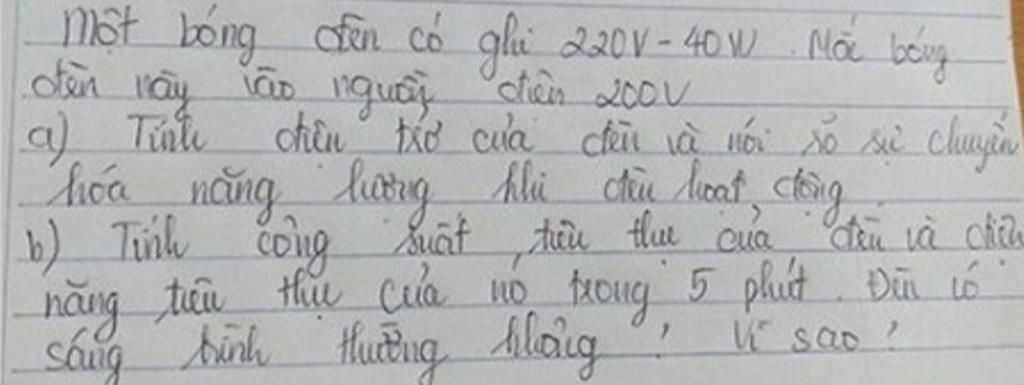 Một bóng đèn có ghi 220V - 40W. Mắc bóng
đèn này vào nguồn điện 200V
a) Tính điện trở của đèn và nói rõ sự chuyển
hóa năng lượng khi đèn hoạt động
b) Tính công suất tiêu thụ của đèn và điện
năng tiêu thụ của nó trong 5 phút. Đèn có
sáng bình thường không? Vì sao?